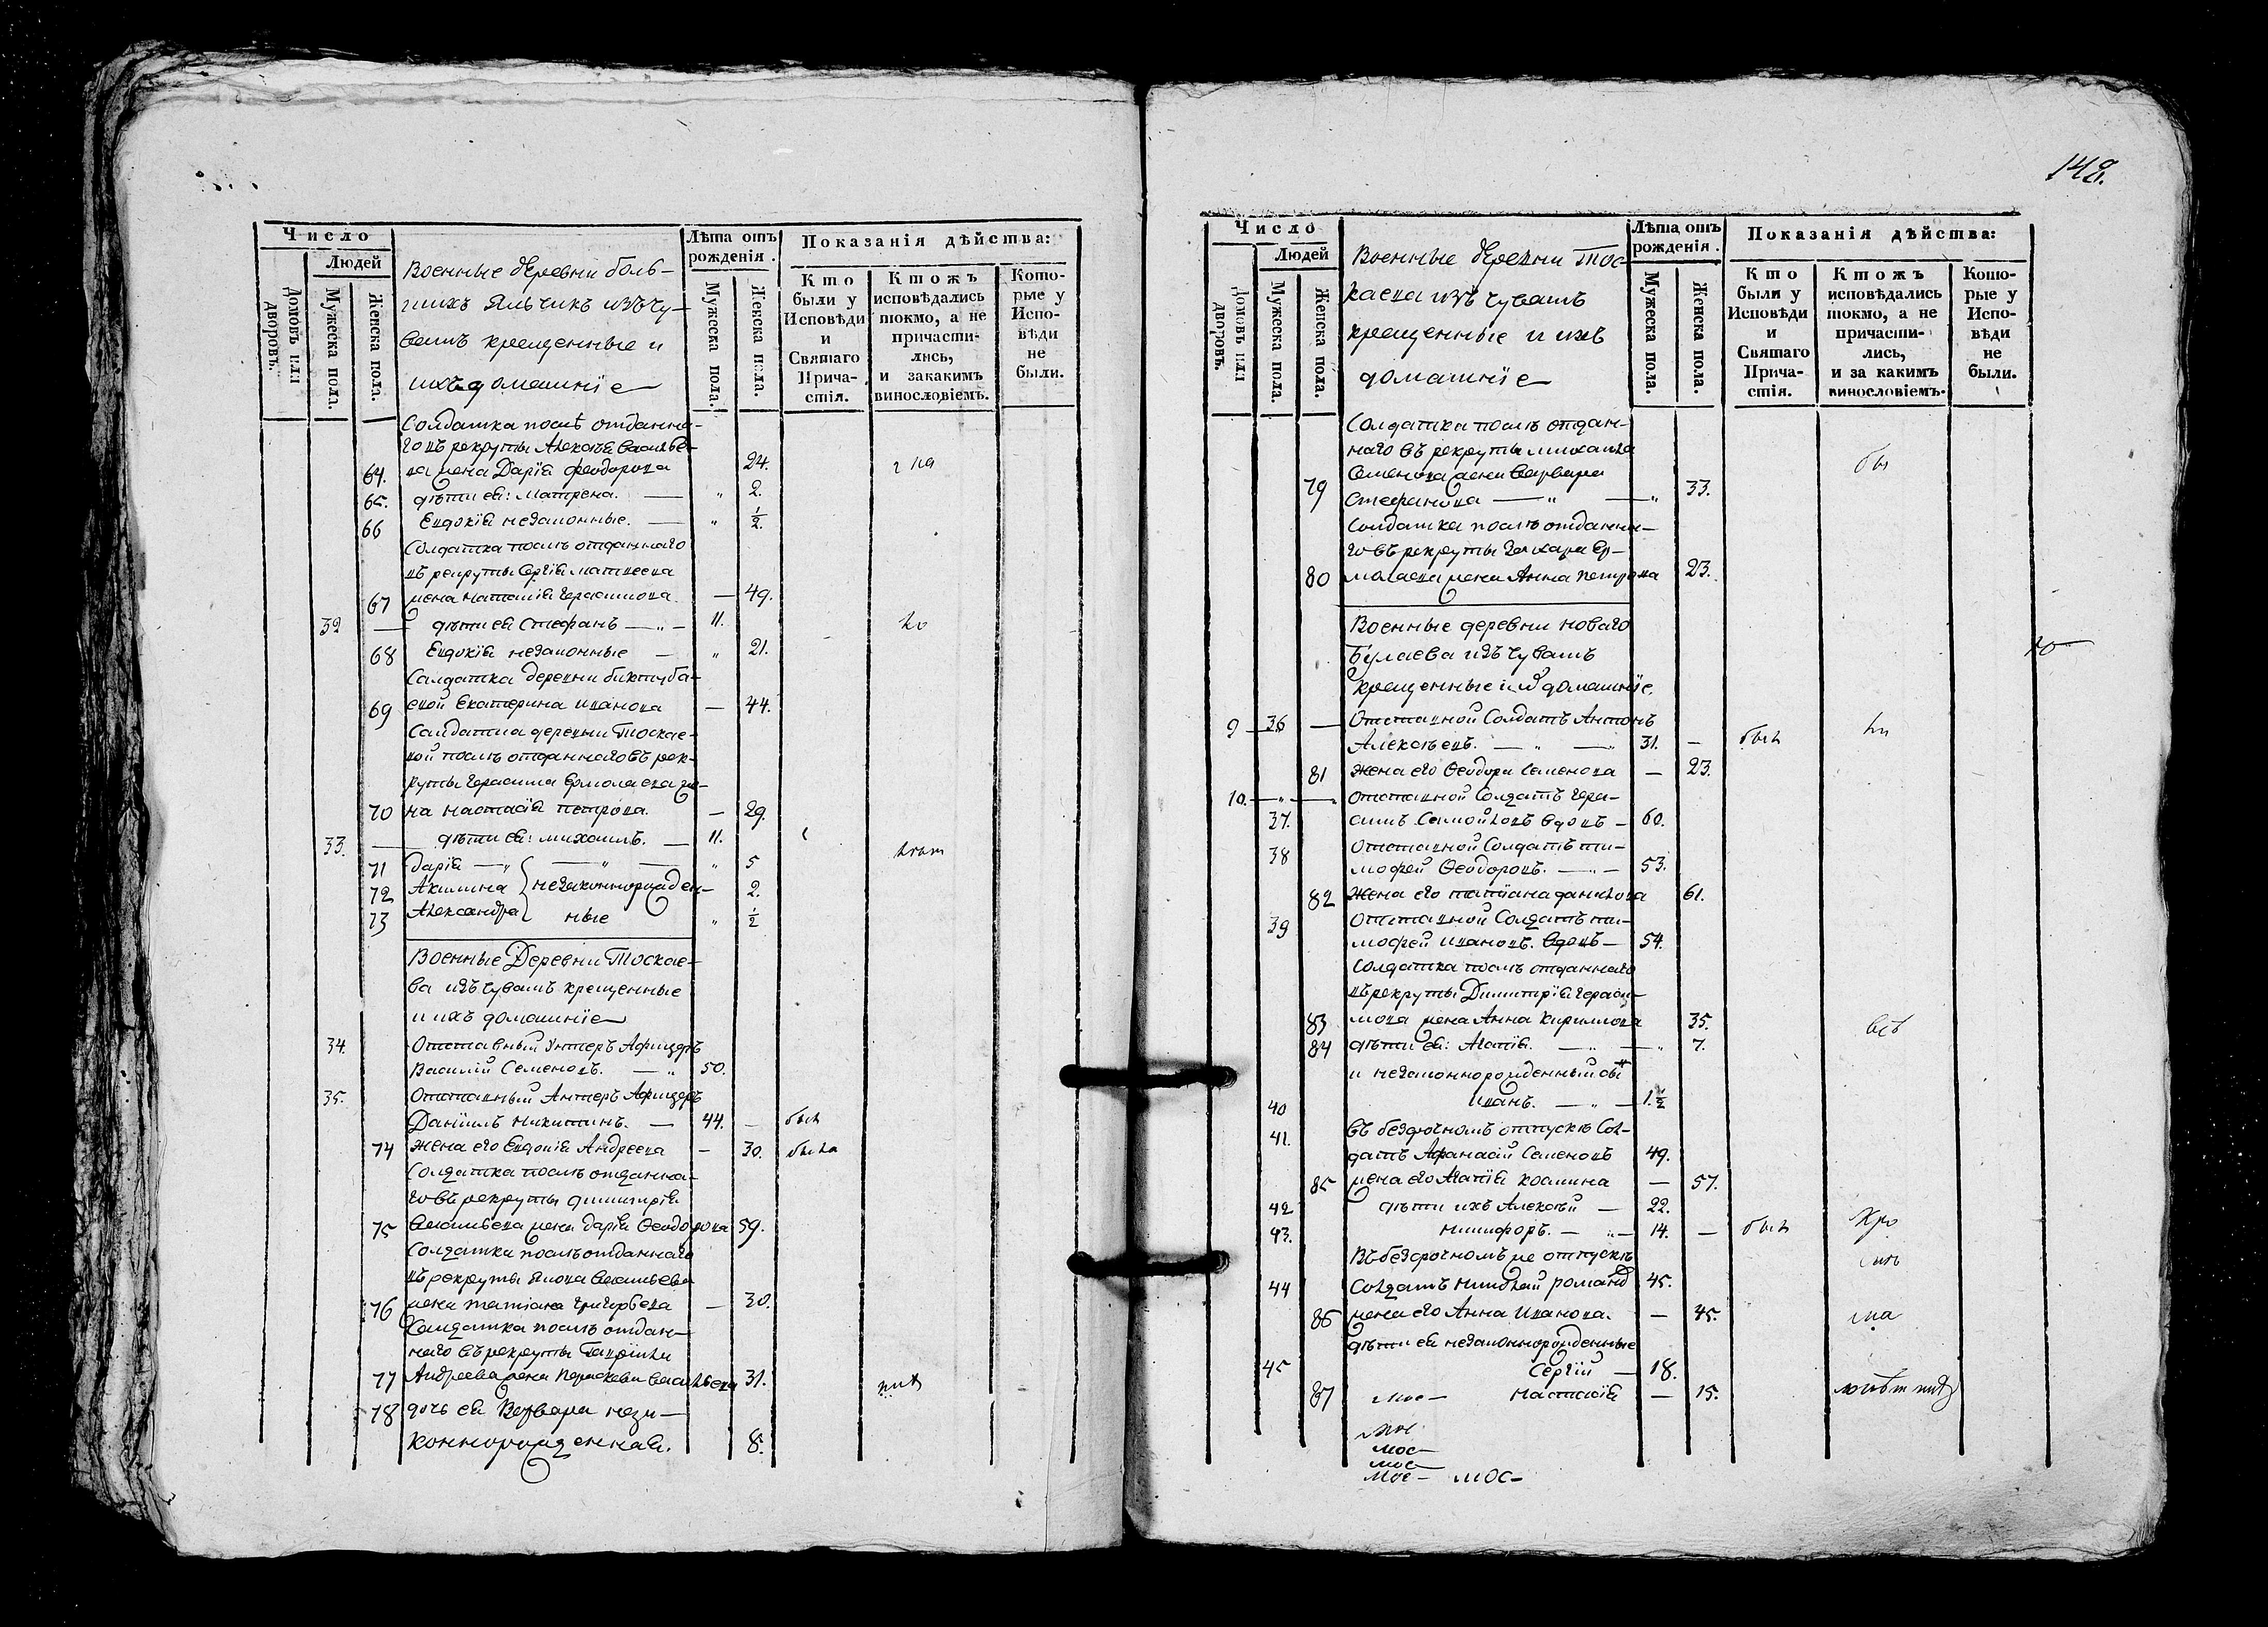 Число
Людей
Домовъ или дворовъ.
Мужеска пола.
Женска пола.
Военные деревни боль-
шихъ Яльчикъ изъ чу-
вашъ крещенные и
ихъ домашніе
Лѣта отъ рожденія.
Мужеска пола.
Женска пола.
Показанія дѣйства:
Кто были у Исповѣди и Святаго Причастія.
Ктожъ исповѣдались токмо, а не причастились, и закакимъ винословіемъ.
Которые у Исповѣди не были.
Солдатка послѣ отданна-
го въ рекруты Алексѣя Василье-
64. ва жена Дарія Феодорова 24.
65. дѣти ея: Матрена. — " 2.
66 Евдокія незаконные. — " 1/2.
Солдатка послѣ отданнаго
въ рекруты Сергія Матвеева
67 жена Наталія Герасимова — 49.
32 — дѣти ея Стефанъ — " — 11.
68 Евдокія незаконные — " 21.
Салдатка деревни биктуба-
69 евой Екатерина Иванова — 44.
Салдатка деревни Тоскае-
вой послѣ отданнаго въ рек-
руты Герасима Ермолаева же-
70 на Настасія Петрова. — 29.
33. — дѣти ея: Михаилъ. — 11.
71 Дарія — " — " — " 5
72 Акилина незаконнорожден- 2.
73 Александра ные " 1/2
Военные Деревни Тоскае-
ва изъ чувашъ крещенные
и ихъ домашніе
34. Отставный Унтеръ Афицеръ
Василій Семеновъ. — " 50.
35. Отставный Антеръ Афицеръ
Даніилъ Никитинъ. — 44. — былъ
74 Жена его Евдокія Андреева — 30. была
Солдатка послѣ отданна-
го въ рекруты Димитрія
75 Васильева жена Дарія Феодорова 59.
Солдатка послѣ отданнаго
въ рекруты Якова Васильева
76 жена Татіана Григорьева — 30.
Солдатка послѣ отдан-
наго въ рекруты Гаврилы
77 Андреева жена Параскева Васильева 31.
78 дочь ея Варвара неза-
коннорожденная. 8.
148.
Число
Людей
Домовъ или дворовъ.
Мужеска пола.
Женска пола.
Военные деревни Тос-
каева изъ чувашъ
крещенные и ихъ
домашніе
Лѣта отъ рожденія.
Мужеска пола.
Женска пола.
Показанія дѣйства:
Кто были у Исповѣди и Святаго Причастія.
Ктожъ исповѣдались токмо, а не причастились, и за какимъ винословіемъ.
Которые у Исповѣди не были.
Солдатка послѣ отдан-
наго въ рекруты Михаила
Семенова жена Варвара
79 Стефанова — " — " 33.
Солдатка послѣ отданна-
го въ рекруты Захара Ер-
80 молаева жена Анна Петрова 23.
Военные деревни новаго
Булаева изъ чувашъ
крещенные и домашніе.
9 — 36 — Отставной Солдатъ Антонъ
Алексѣевъ. — " — " 31. — былъ
81 жена его Феодора Семенова — 23.
10. — " — Отставной Солдатъ Гера-
37. симъ Самойловъ вдовъ — 60.
38 Отставной Солдатъ Ти-
мофей Феодоровъ. — " — 53.
82 Жена его Татіана Данилова 61.
39 Отставной Солдатъ Ти-
мофей Ивановъ. вдовъ — 54.
Солдатка послѣ отданнаго
въ рекруты Димитрія Гераси-
83 мова жена Анна Кирилова 35.
84 дѣти ея: Агапія. — " — " 7.
и незаконнорожденный
40 Иванъ. — " — 1 1/2
41. Въ безсрочномъ отпускѣ Сол-
датъ Афанасій Семеновъ 49.
85 жена его Агапія Козмина — 57.
42 дѣти ихъ Алексѣй — 22.
43. Никифоръ. — " — 14. — былъ
Въ безсрочномъ же отпускѣ
44 Солдатъ Николай Романовъ 45.
86 жена его Анна Иванова. — 45.
дѣти ея незаконнорожденные
45 Сергій — 18.
87 Настасія — 15.